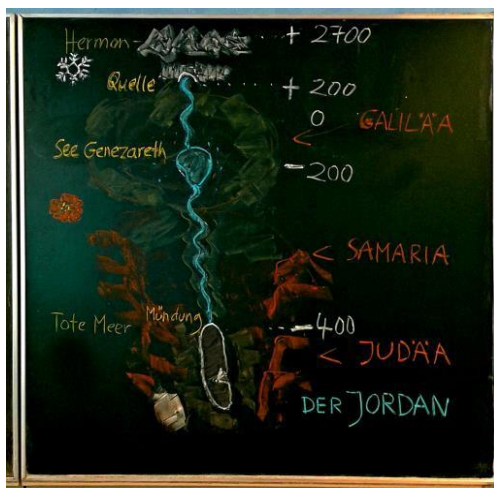 Hermon + 2700
Quelle + 200
0
GALILÄA
See Genezareth
- 200
< SAMARIA
Tote Meer Mündung - 400
< JUDÄA
DER JORDAN